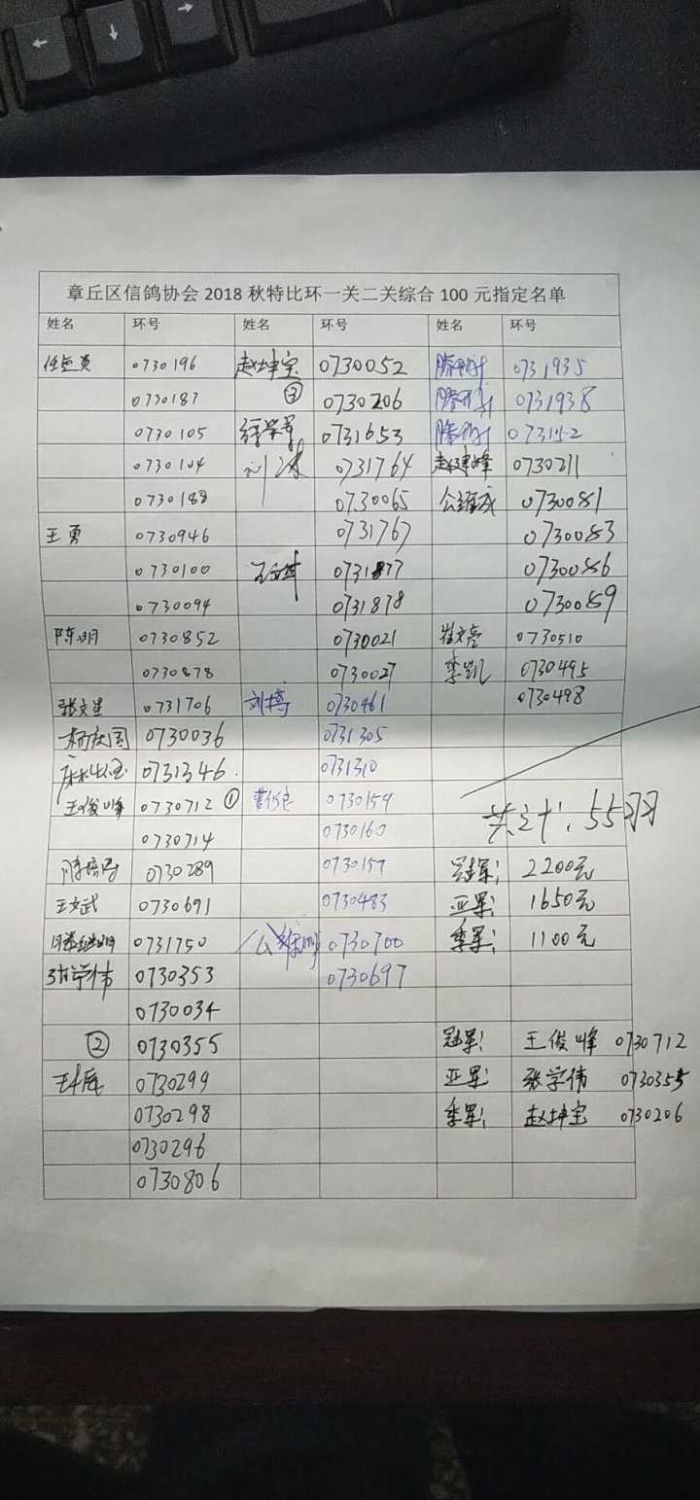 章丘区信鸽协会 2018 秋特比环一关二关综合 100 元指定名单
姓名 环号 姓名 环号 姓名 环号
0730196 赵坤宝 0730052 0731935
0730187 ③ 0730206 0731938
0730105 0731653
0730104 刘 0731764 赵建峰 0730211
0730188 0730065 0730081
王勇 0730946 0731767 0730083
0730100 0731877 0730086
0730094 0731878 0730089
陈明 0730852 0730021 崔文亮 0730510
0730878 0730027 李凯 0730495
0731706 刘 0730461 0730498
杨庆国 0730036 0731305
0731346 0731310
王俊峰 0730712 ① 0730159 共计:55羽
0730714 0730160
0730289 0730157 冠军: 2200元
王文武 0730691 0730483 亚军: 1650元
0731750 0730700 季军: 1100元
张学伟 0730353 0730697
0730034
② 0730355 冠军: 王俊峰 0730712
0730299 亚军: 张学伟 0730355
0730298 季军: 赵坤宝 0730206
0730296
0730806